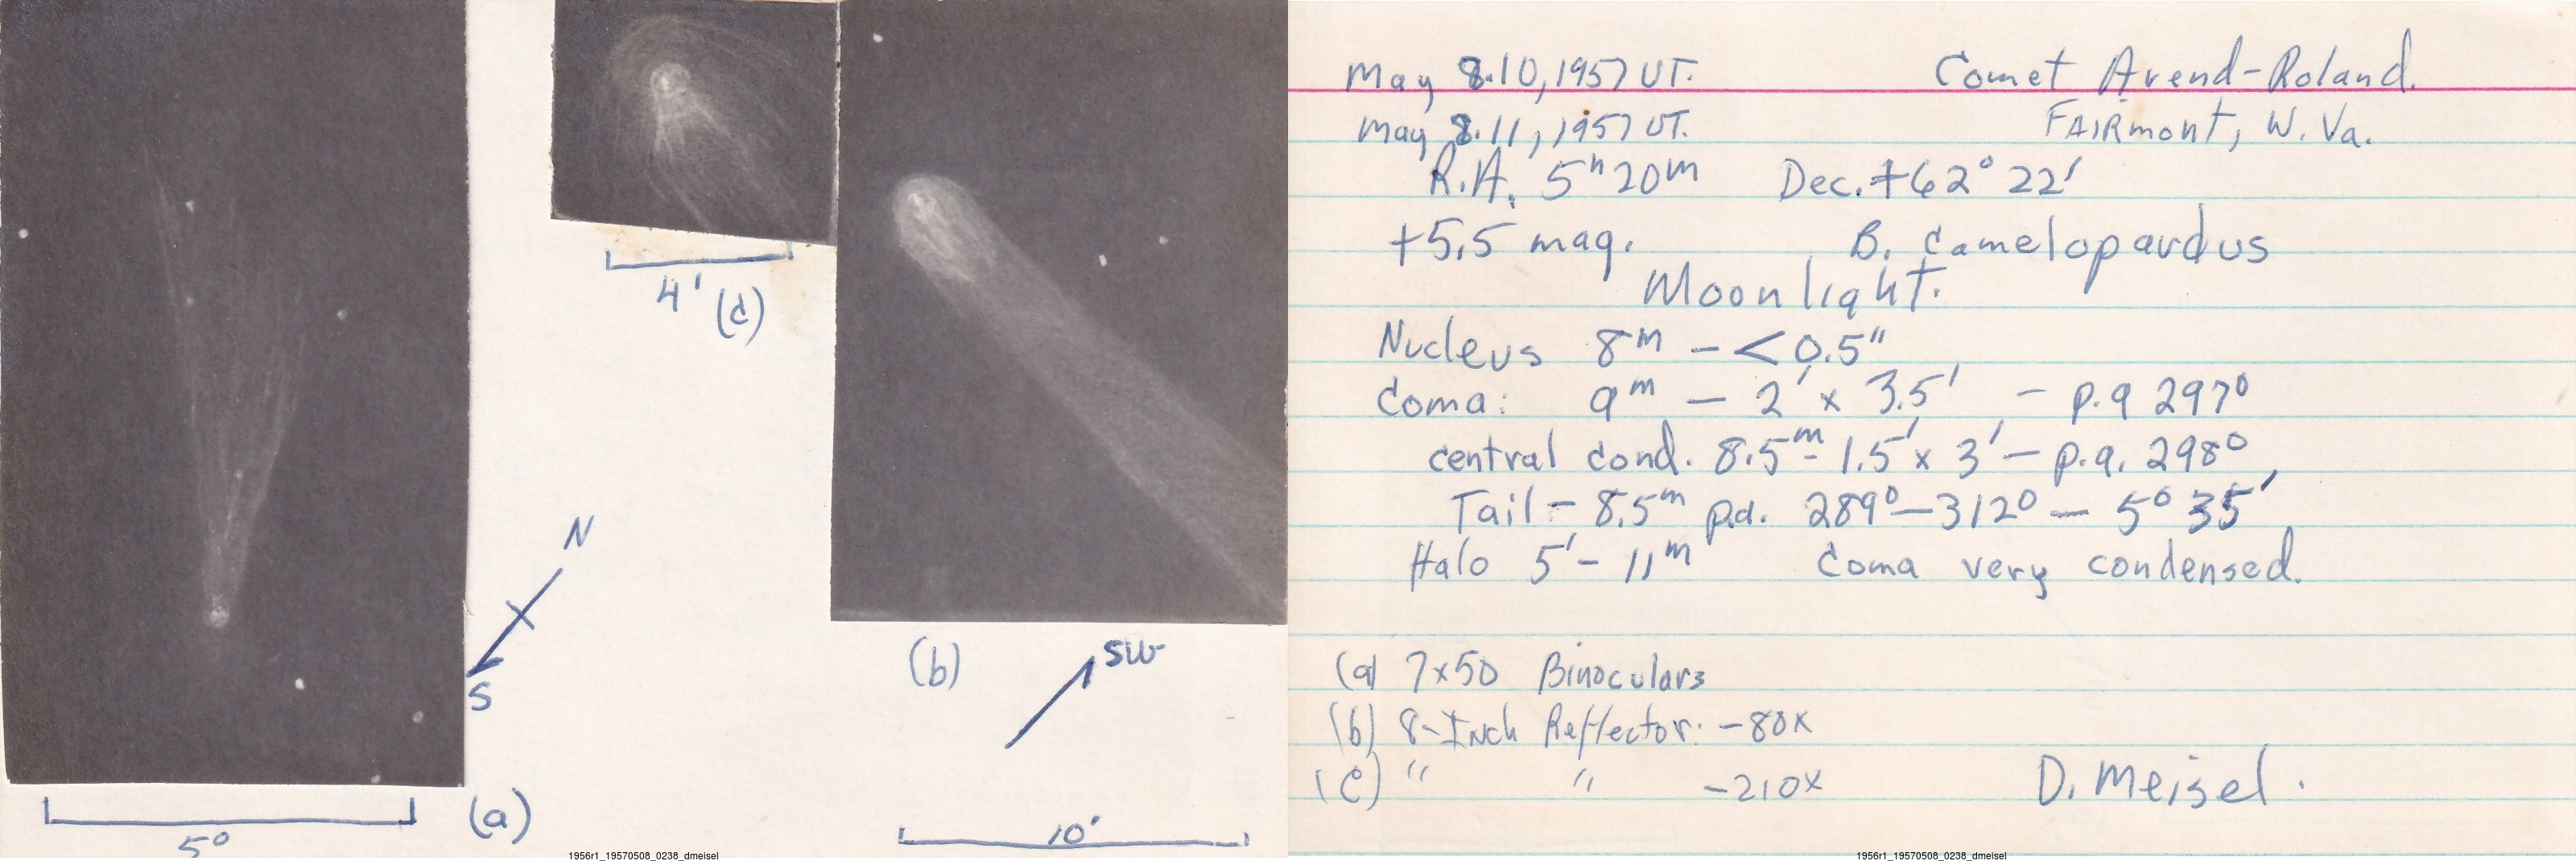 4' (c)
N
S
(a)
5°
(b)
SW
10'
1956r1_19570508_0238_dmeisel
May 8.10, 1957 UT. Comet Arend-Roland.
May 8.11, 1957 UT. FAIRmont, W. Va.
R.A. 5h 20m Dec. +62° 22'
+5.5 mag. B. Camelopardus
Moonlight.
Nucleus 8m - <0.5"
Coma: 9m - 2' x 3.5' - p.a 297°
central cond. 8.5m - 1.5' x 3' - p.a. 298°
Tail - 8.5m p.a. 289° - 312° - 5° 35'
Halo 5' - 11m Coma very condensed.
(a) 7x50 Binoculars
(b) 8-Inch Reflector. -80x
(c) " " -210x
D. Meisel.
1956r1_19570508_0238_dmeisel